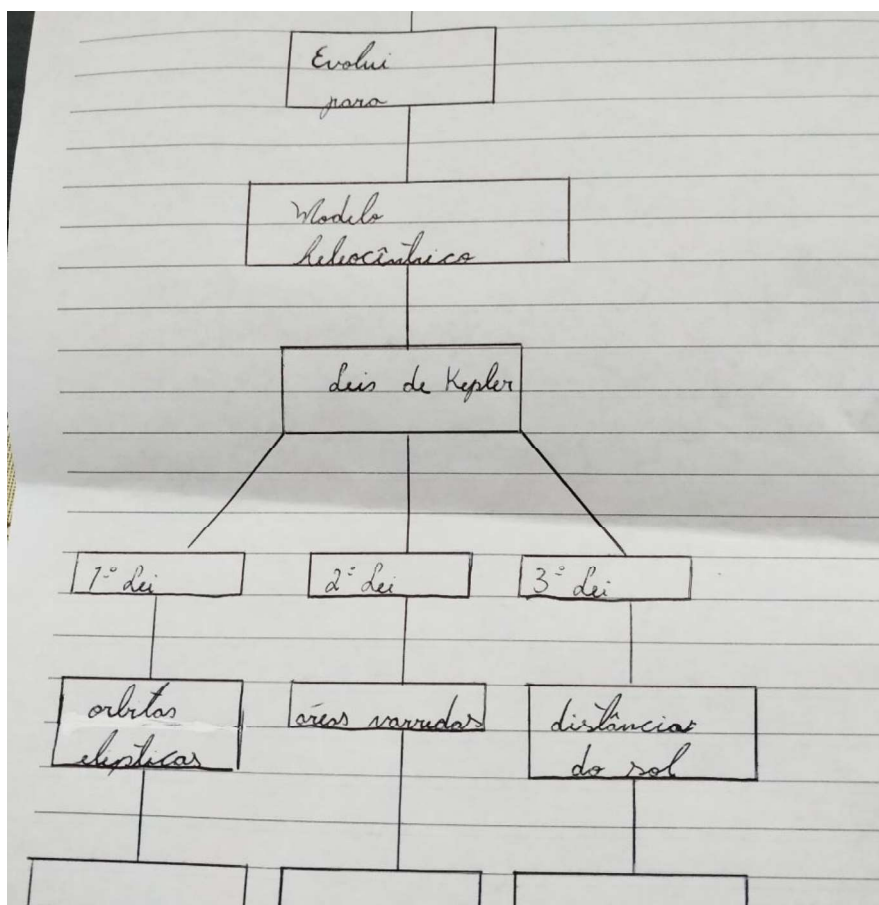 Evolui
para
Modelo
heliocêntrico
Leis de Kepler
1º Lei
2º Lei
3º Lei
orbitas
elipticas
áreas varridas
distâncias
do sol